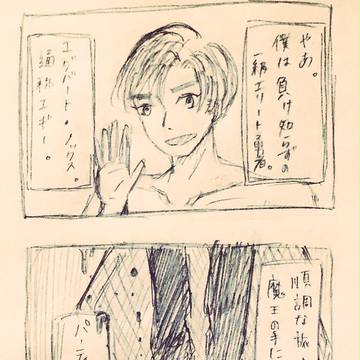 やあ。
僕は負け知らずの
一級エリート勇者。
エグバート・ノックス。
通称エギー。
順調な旅
魔王の手に
パーティ